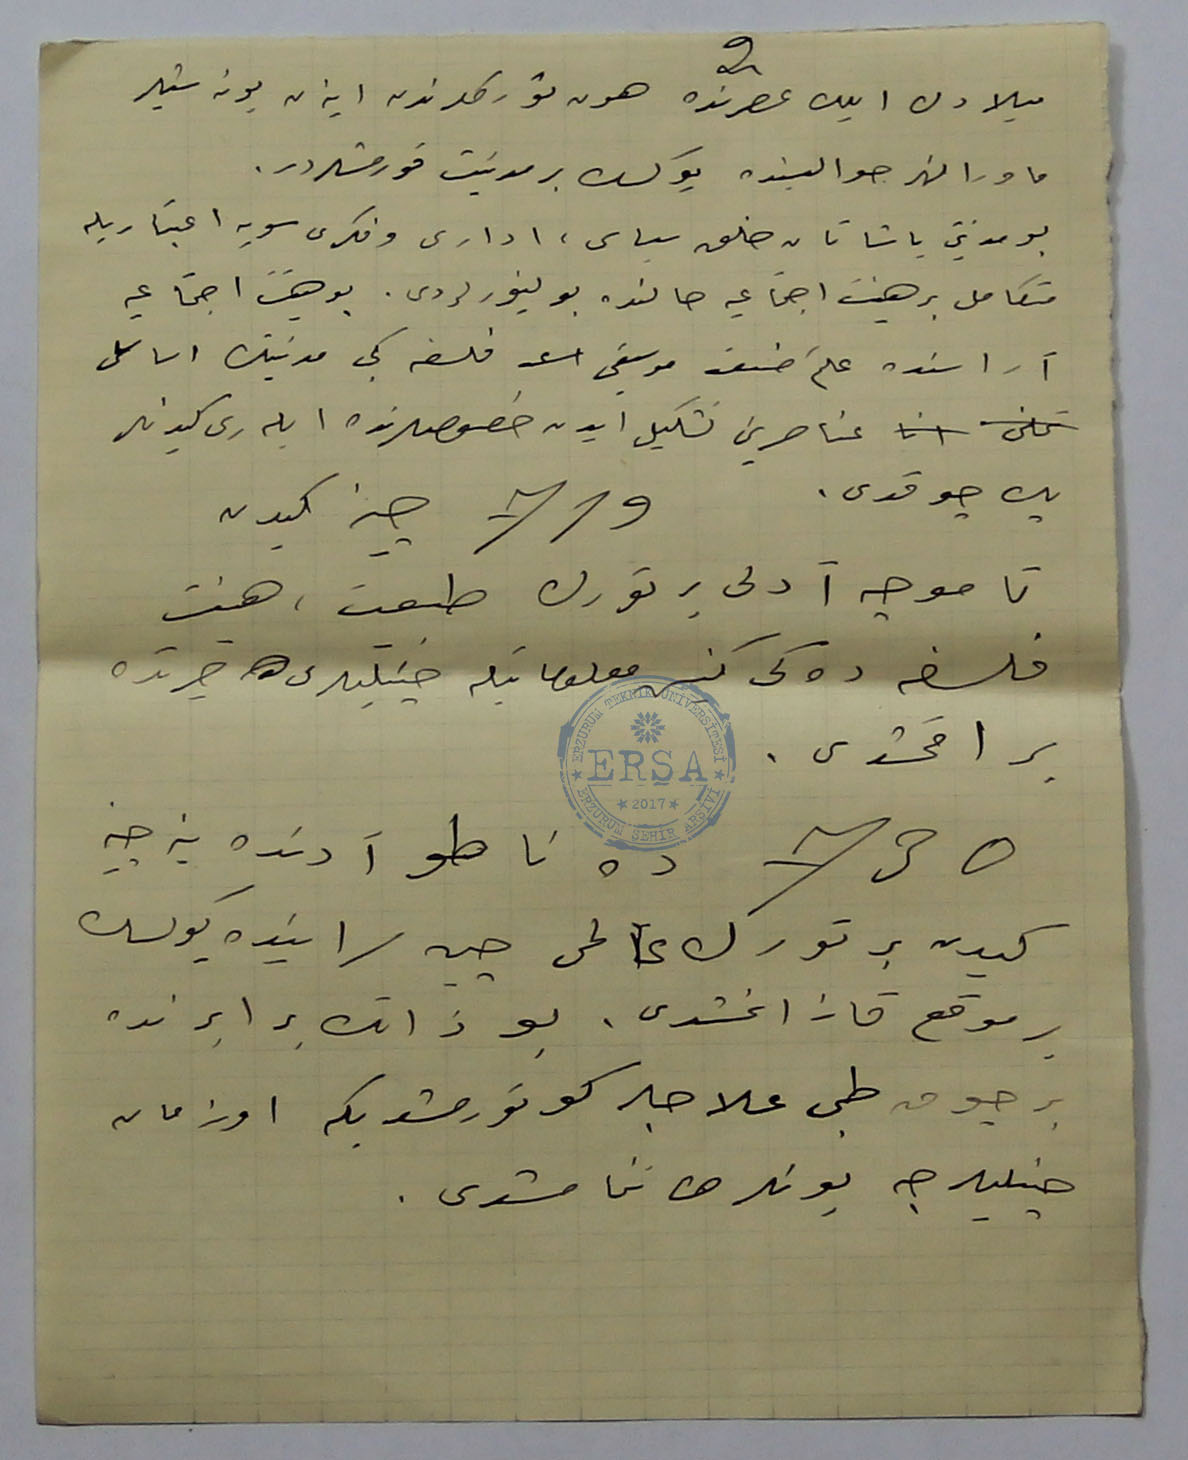 2
میلادك ایلك عصرنده هون تورکلرندن اینن یوئه شیلر
ماورا النهر حوالیسنده یوکسك بر مدنیت قورمشلردر.
بو مدنیتی یاشاتان خلق سیاسی، اداری و فکری سویه اعتباریله
متکامل بر هیئت اجتماعیه حالنده بولنیورلردی. بو هیئت اجتماعیه
آراسنده علم صنعت موسیقی فلسفه کبی مدنیتك اساسلی
عناصرینی تشکیل ایدن خصوصلرنده ایلری کیدنلر
پك چوقدی.
۷۱۹ چینه کیدن
تاموچه آدلی بر تورك طبیعت، هیئت
فلسفه ده کی کنیش معلوماتیله چینلیلری حیرتده
براقمشدی.
۷۳۵ ده ناطو آدنده ینه چینه
کیدن بر تورك عالمی چین سراینده یوکسك
بر موقع قازانمشدی. بو ذاتك برابرنده
بر چوق طبی علاجلر کوتورمشدیکه او زمان
چینلیلرجه بونلر طانینمامشدی.
ERZURUM TEKNİK ÜNİVERSİTESİ
ERŞA
2017
ERZURUM ŞEHİR ARŞİVİ